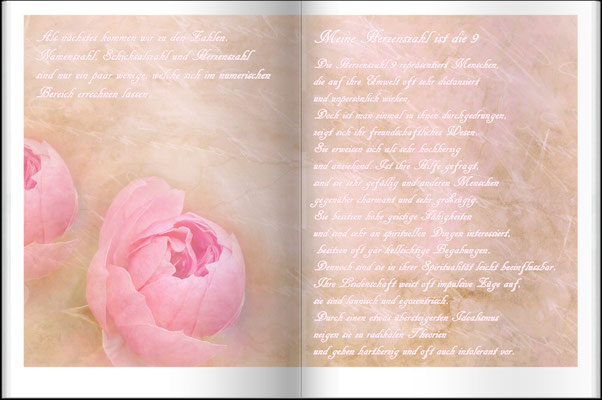 Als nächstes kommen wir zu den Zahlen.
Namenszahl, Schicksalszahl und Herzenszahl
sind nur ein paar wenige, welche sich im numerischen
Bereich errechnen lassen.
Meine Herzenszahl ist die 9
Die Herzenszahl 9 repräsentiert Menschen,
die auf ihre Umwelt oft sehr distanziert
und unpersönlich wirken.
Doch ist man einmal zu ihnen durchgedrungen,
zeigt sich ihr freundschaftliches Wesen.
Sie erweisen sich als sehr hochherzig
und annehmend. Ist ihre Hilfe gefragt,
sind sie sehr gefällig und anderen Menschen
gegenüber charmant und sehr großzügig.
Sie besitzen hohe geistige Fähigkeiten
und sind sehr an spirituellen Dingen interessiert,
besitzen oft gar hellsichtige Begabungen.
Dennoch sind sie in ihrer Spiritualität leicht beeinflussbar.
Ihre Leidenschaft weist oft impulsive Züge auf,
sie sind launisch und egozentrisch.
Durch einen etwas übersteigerten Idealismus
neigen sie zu radikalen Theorien
und gehen hartherzig und oft auch intolerant vor.